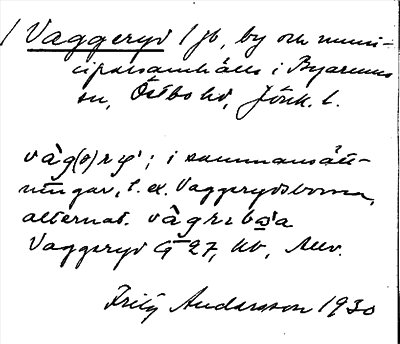 / Vaggeryd / jb, by och muni-
cipalsamhälle i Byarums
sn, Östbo hd, Jönk. l.
vàg(ə)ry; i sammansätt-
ningar, t. ex. Vaggerydsborna,
alternat.
Vaggeryd G 27, kb, Allv.
Frity Andersson 1930